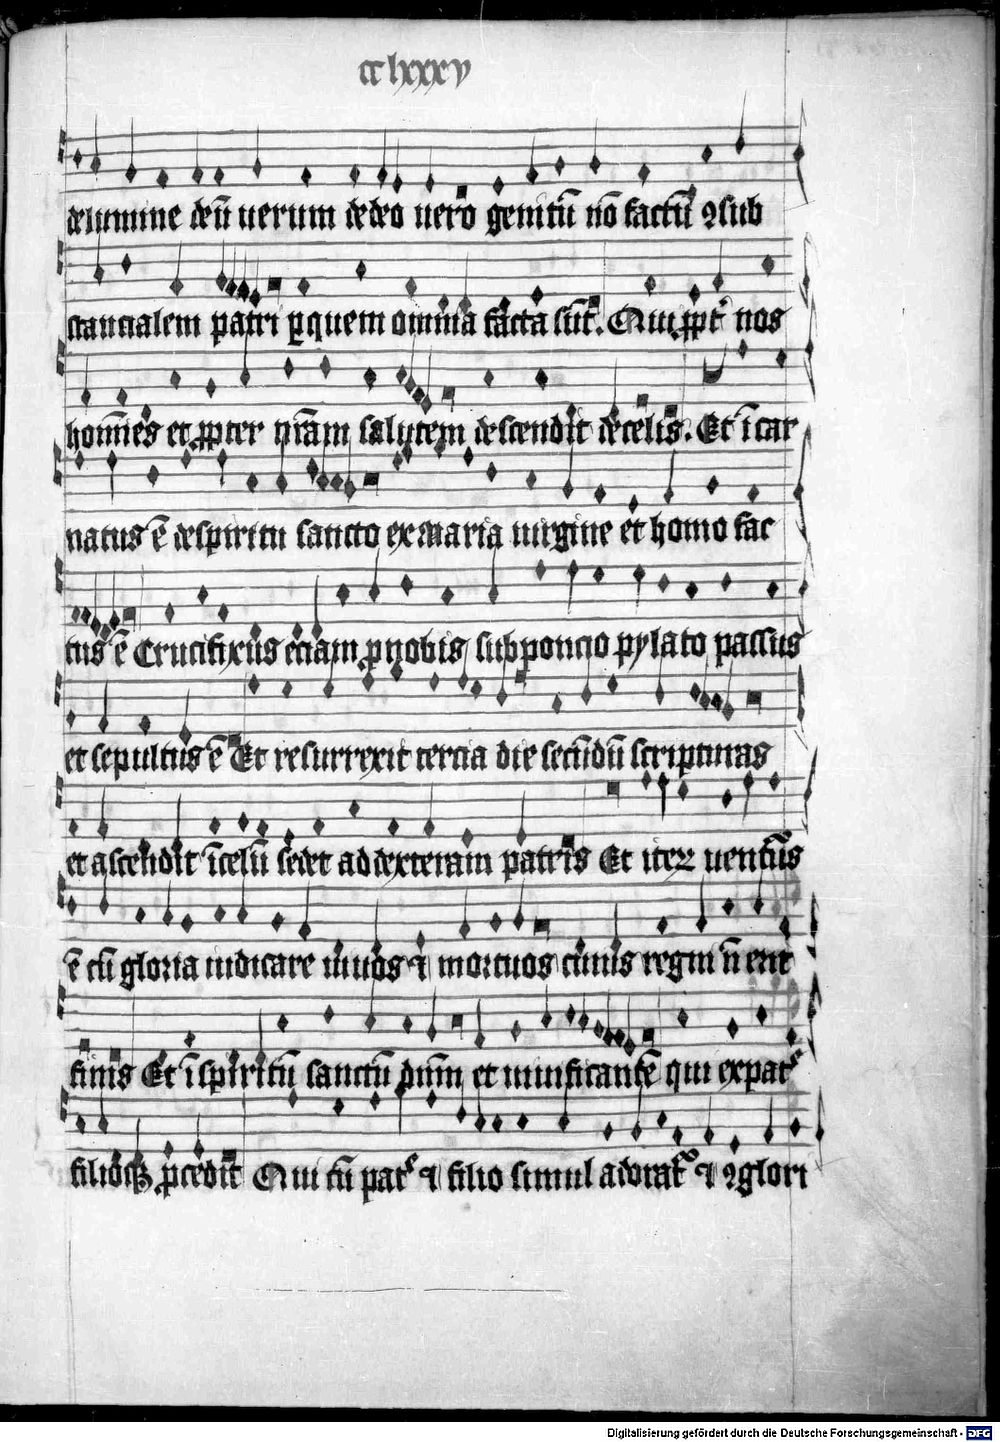 cclxxxv
de lumine deū uerum de deo uero genitū nō factū ꝯsub
stancialem patri ꝑquem omnia facta sūt. Qui ꝓpt᷑ nos
hoīnes et ꝓpter nr̄am salutem descendit de celis. Et īcar
natus ē de spiritu sancto ex maria uirgine et homo fac
tus ē Crucifixus eciam ꝓ nobis sub poncio pylato passus
et sepultus ē Et resurrexit tercia die secūdū scripturas
et ascendit ī celū sedet ad dexteram patris Et iteꝝ uenturꝰ
ē cū gloria iudicare uiuos ⁊ mortuos cuius regni nō erit
finis Et ī spiritū sanctū dn̄m et uiuificantē qui ex patre
filioqꝫ ꝓcedit Qui cū patre ⁊ filio simul adorat᷑ ⁊ ꝯglori
Digitalisierung gefördert durch die Deutsche Forschungsgemeinschaft - DFG